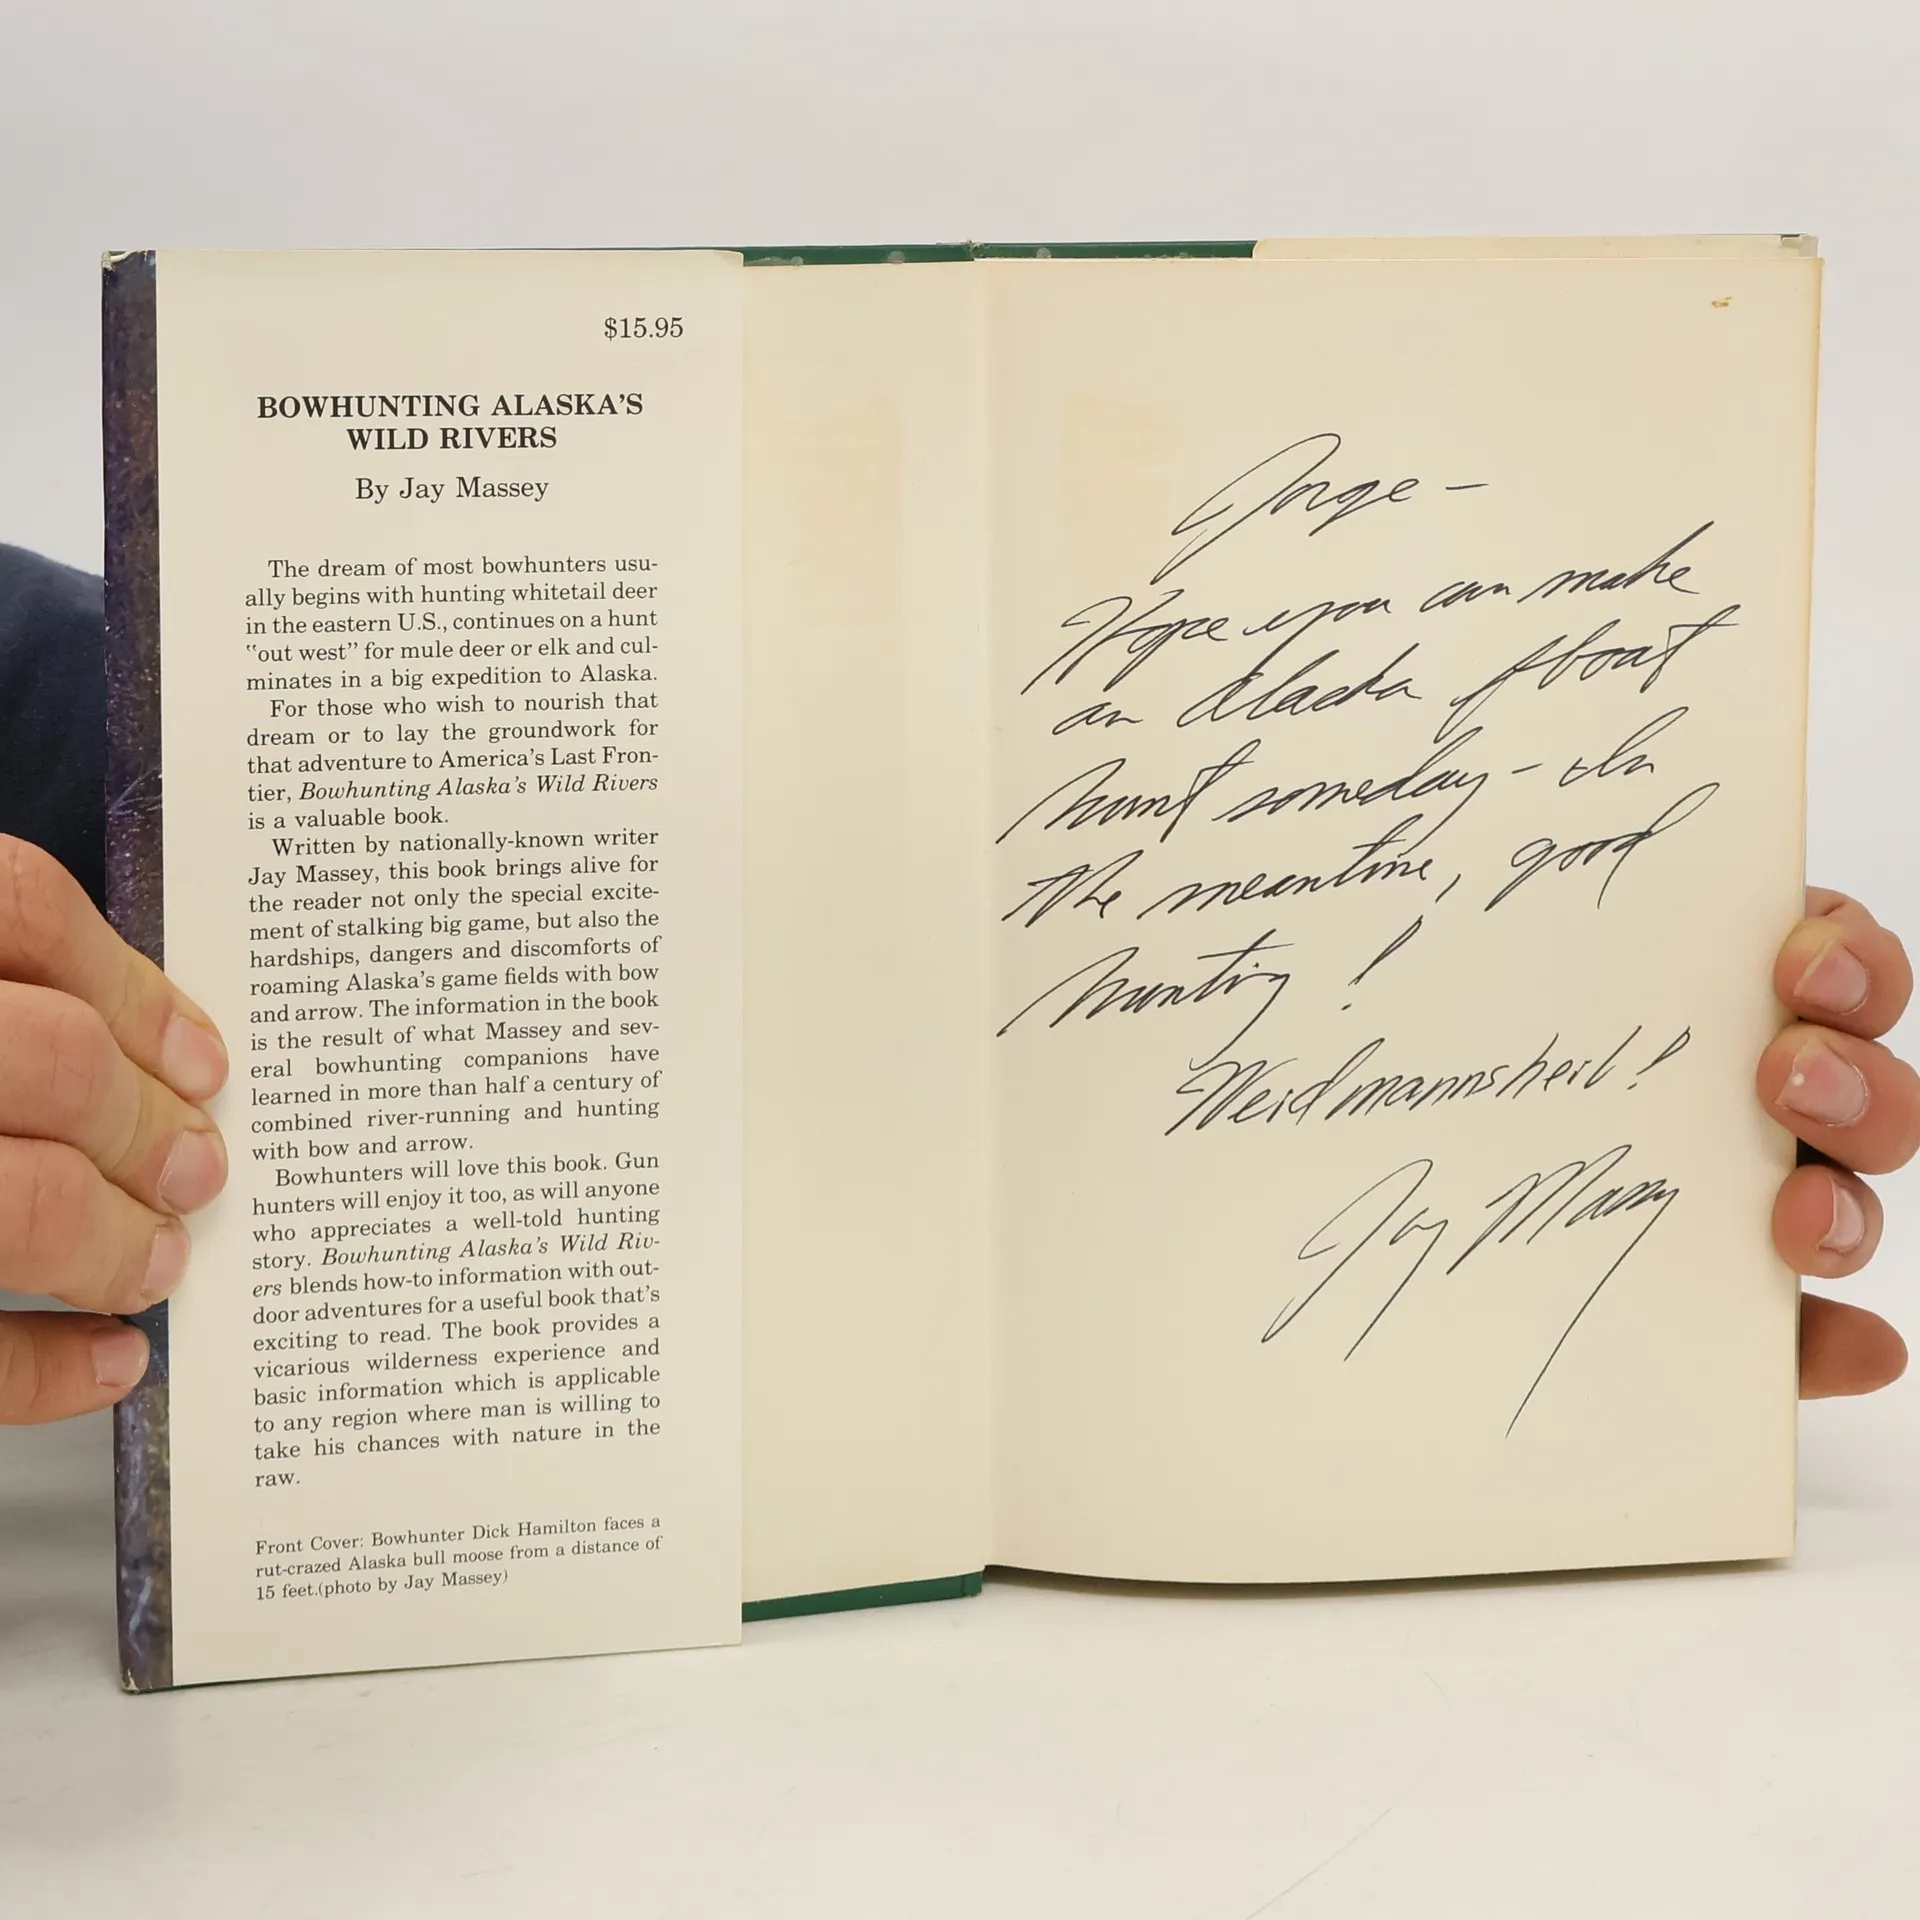 $15.95
BOWHUNTING ALASKA'S
WILD RIVERS
By Jay Massey
The dream of most bowhunters usu-
ally begins with hunting whitetail deer
in the eastern U.S., continues on a hunt
"out west" for mule deer or elk and cul-
minates in a big expedition to Alaska.
For those who wish to nourish that
dream or to lay the groundwork for
that adventure to America's Last Fron-
tier, Bowhunting Alaska's Wild Rivers
is a valuable book.
Written by nationally-known writer
Jay Massey, this book brings alive for
the reader not only the special excite-
ment of stalking big game, but also the
hardships, dangers and discomforts of
roaming Alaska's game fields with bow
and arrow. The information in the book
is the result of what Massey and sev-
eral bowhunting companions have
learned in more than half a century of
combined river-running and hunting
with bow and arrow.
Bowhunters will love this book. Gun
hunters will enjoy it too, as will anyone
who appreciates a well-told hunting
story. Bowhunting Alaska's Wild Riv-
ers blends how-to information with out-
door adventures for a useful book that's
exciting to read. The book provides a
vicarious wilderness experience and
basic information which is applicable
to any region where man is willing to
take his chances with nature in the
raw.
Front Cover: Bowhunter Dick Hamilton faces a
rut-crazed Alaska bull moose from a distance of
15 feet.(photo by Jay Massey)
Jorge –
Hope you can make
an Alaska float
hunt someday – In
the meantime, good
hunting!
Weidmannsheil!
Jay Massey